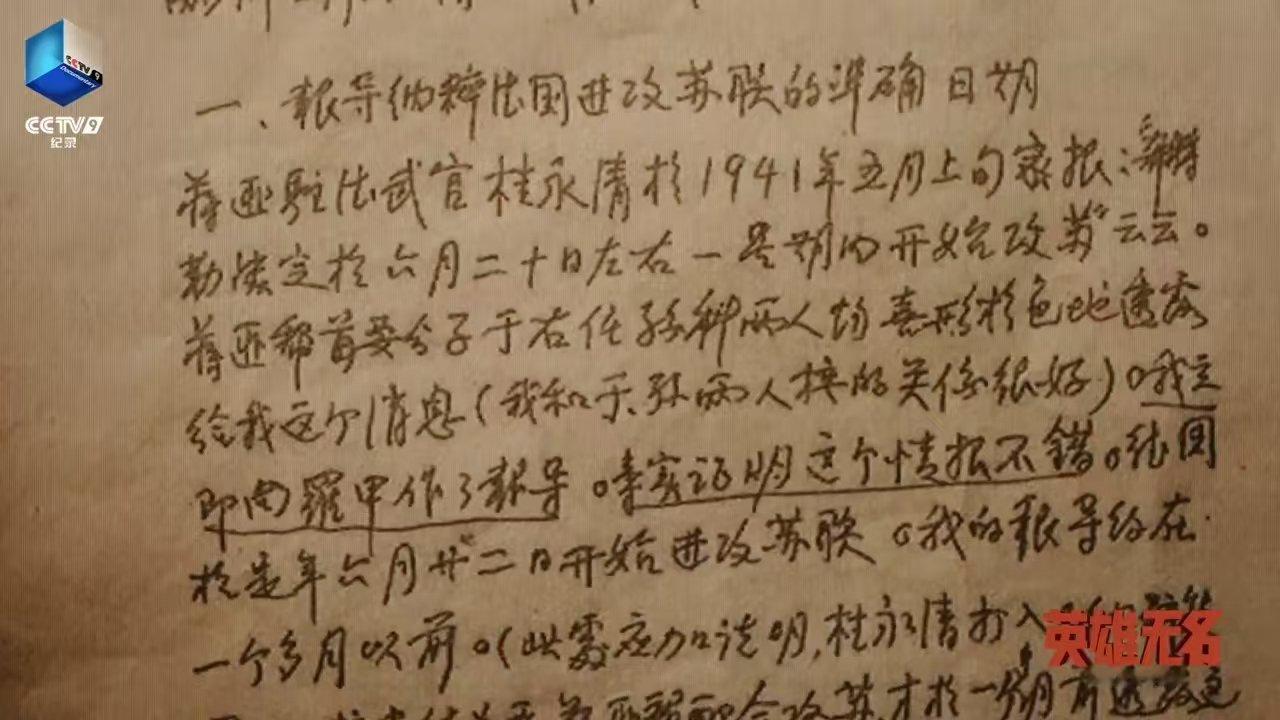 CCTV 9
Documentary
CCTV 9
纪录
一、报导纳粹德国进攻苏联的准确日期
蒋匪驻德武官桂永清于1941年五月上旬密报:希特
勒决定于六月二十日左右一星期内开始攻苏"云云。
蒋匪帮首要分子于右任孙科两人均喜形于色地透露
给我这个消息(我和于、孙两人搞的关系很好)。我立
即向罗申作了报导。事实证明这个情报不错。德国
于是年六月廿二日开始进攻苏联。我的报导约在
一个多月以前。(此处应加说明,桂永清打入
英雄无名